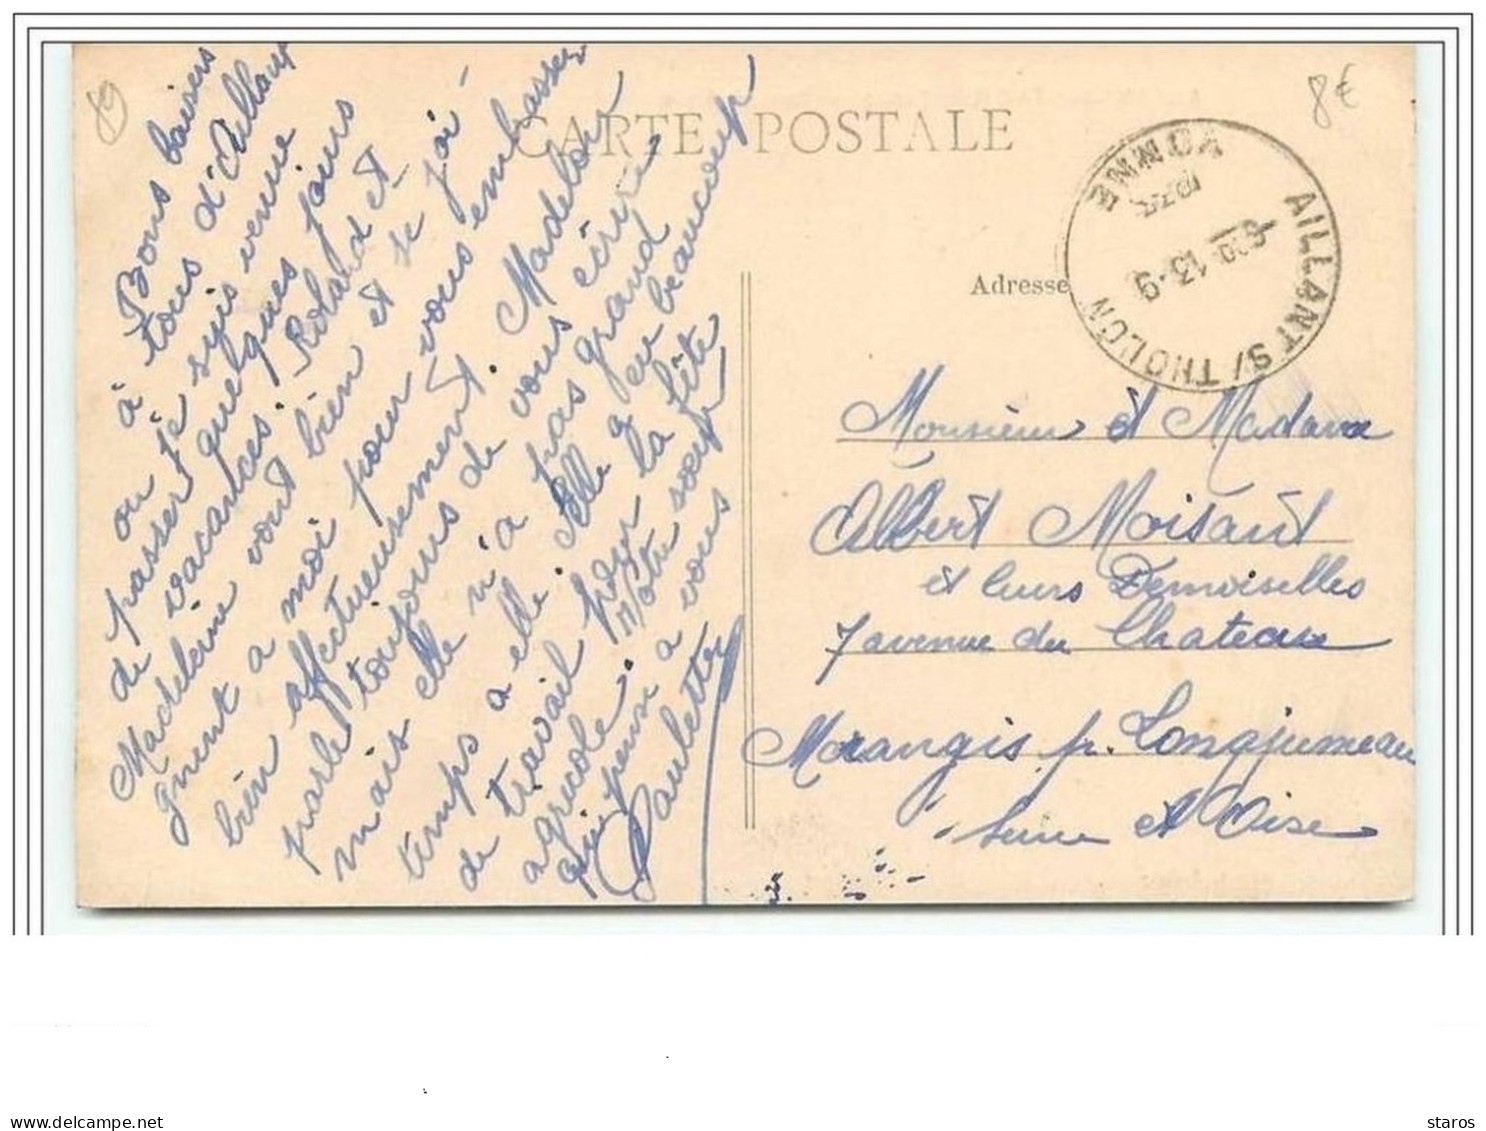 CARTE POSTALE
89
8€
Bons baisers
à tous d'Aillant
ou je suis venue
passer quelques jours
de vacances. Roland et
Madeleine vont bien et se joi-
gnent a moi pour vous embrasser
bien affectueusement. Madelon
parle toujours de vous écrire
mais elle n'a pas grand
temps a elle elle a eu beaucoup
de travail pour la fête
agricole. Votre soeur
qui pense a vous
Paulette
AILLANT S/ THOLON
YONNE
13-9
Adresse
Monsieur et Madame
Albert Moisant
et leurs Demoiselles
7 avenue du Chateau
Morangis pr. Longjumeau
Seine et Oise
staros
delcampe.net